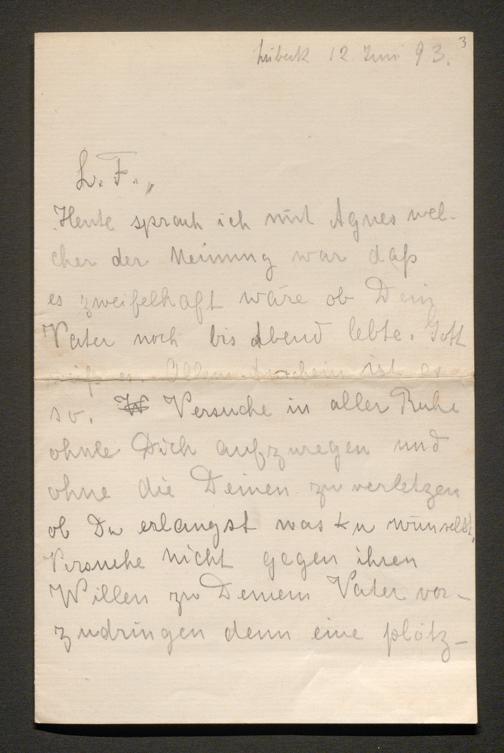 3
Lübeck 12 Juni 93.
L. F.,,
Heute sprach ich mit Agnes wel-
cher der Meinung war daß
es zweifelhaft wäre ob Dein
Vater noch bis Abend lebte. Gott
weiß es. Allem Anschein ist es
so. Versuche in aller Ruhe
ohne Dich aufzuregen und
ohne die Deinen zu verletzen
ob Du erlangst was Du wünschst,
Versuche nicht gegen ihren
Willen zu Deinem Vater vor-
zudringen denn eine plötz-